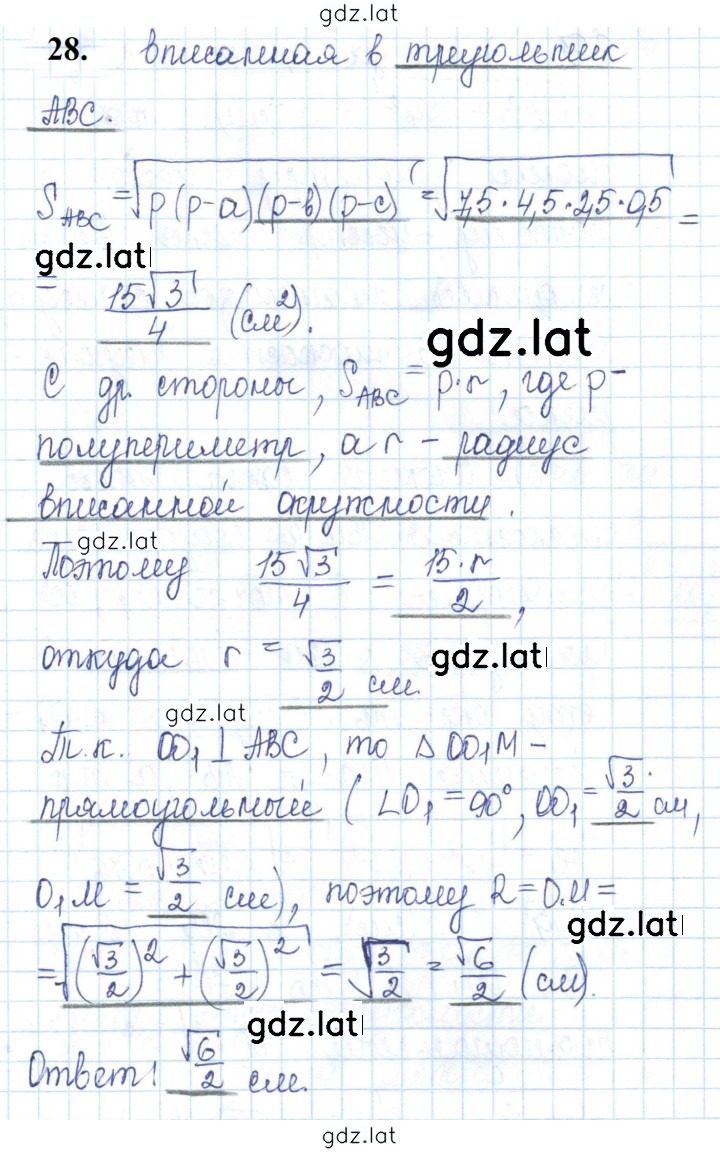 gdz.lat
28. вписанная в треугольник
ABC.
S_ABC = √(p(p-a)(p-b)(p-c)) = √(7,5·4,5·2,5·0,5) =
gdz.lat
= 15√3/4 (см²).
gdz.lat
С др. стороны, S_ABC = p·r, где p-
полупериметр, а r - радиус
вписанной окружности.
gdz.lat
Поэтому 15√3/4 = 15·r/2,
откуда r = √3/2 см.
gdz.lat
gdz.lat
Т.к. OO₁ ⊥ ABC, то △OO₁M -
прямоугольный (∠O₁ = 90°, OO₁ = √3/2 см,
O₁M = √3/2 см), поэтому R = OM =
gdz.lat
= √((√3/2)² + (√3/2)²) = √(3/2) = √6/2 (см).
gdz.lat
Ответ: √6/2 см.
gdz.lat